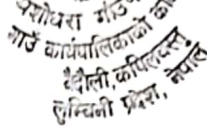 यशोधरा गाउँ
गाउँ कार्यपालिकाको का
रैदौली, कपिलवस्तु
लुम्बिनी प्रदेश, नेपाल